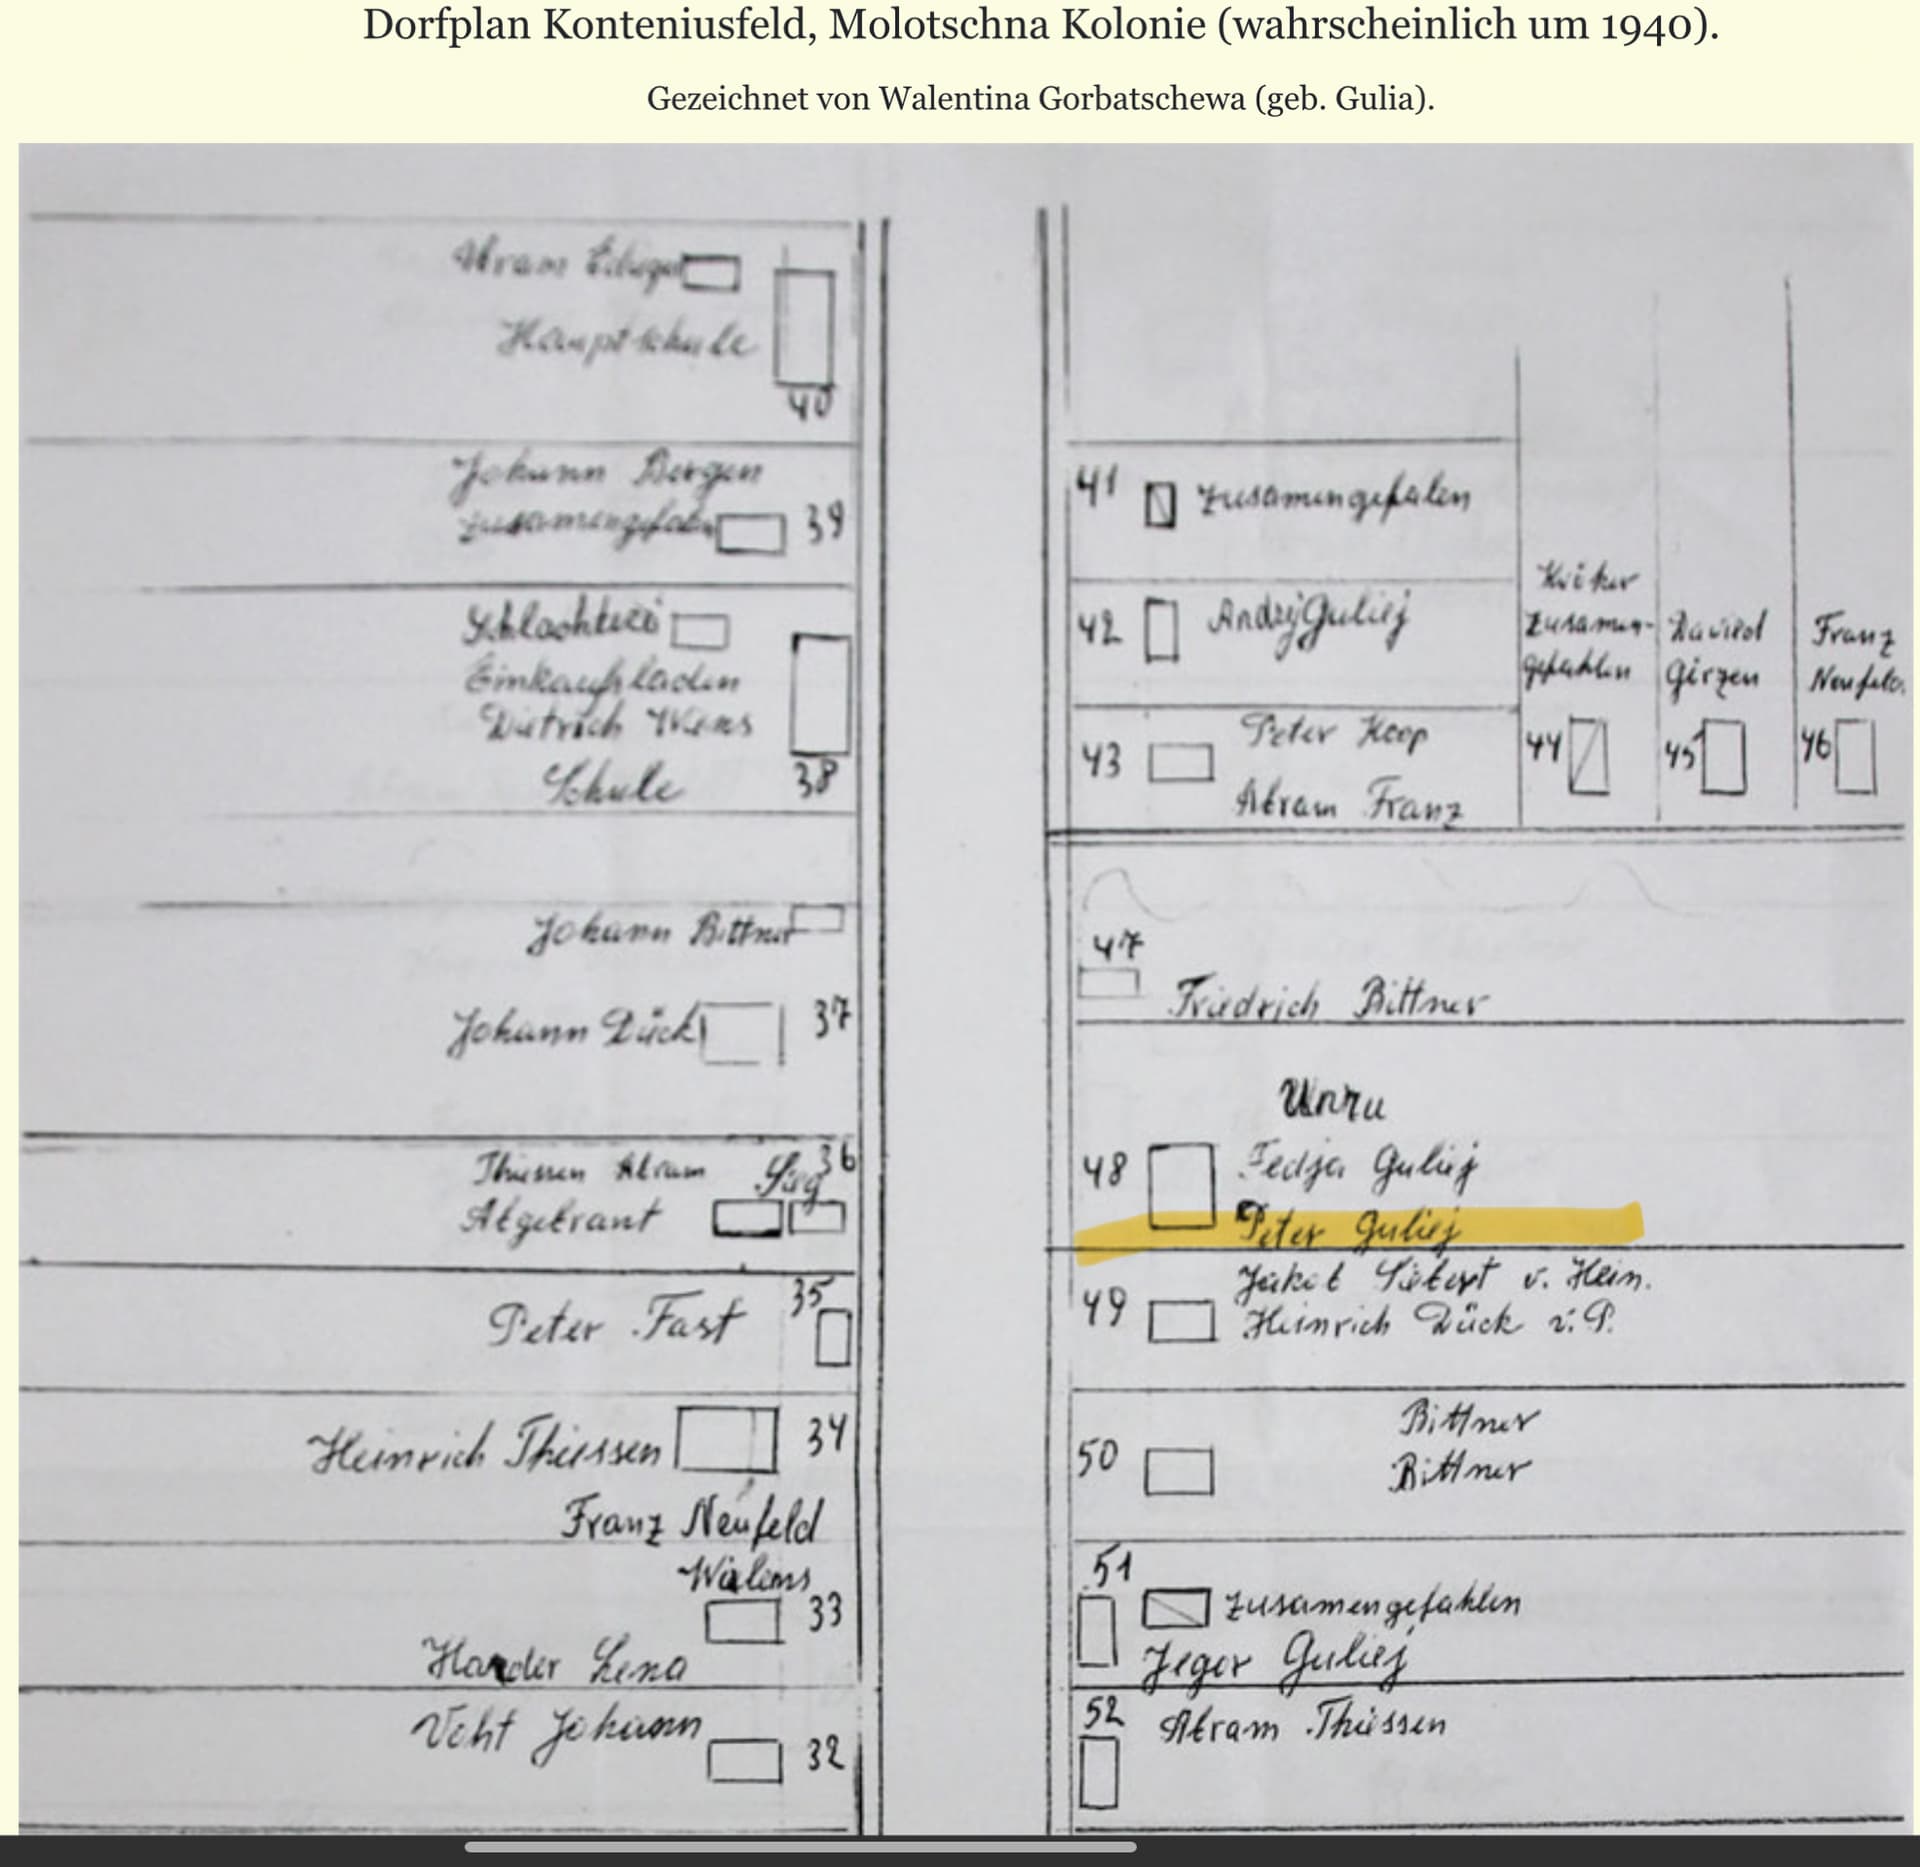 Dorfplan Konteniusfeld, Molotschna Kolonie (wahrscheinlich um 1940).
Gezeichnet von Walentina Gorbatschewa (geb. Gulia).
Abram
Hauptschule
40
Johann Bergen
zusamengefalen 39
Schlachterei
Einkaufsladen
Dietrich Wiens
Schule 38
Johann Bittner
Johann Dück 37
Thiessen Abram 36
Abgebrant
Peter Fast 35
Heinrich Thiessen 34
Franz Neufeld
Wialems
33
Harder Lena
Voht Johann
32
41 zusamengefalen
42 Andrij Guliej
43 Peter Koop
Abram Franz
zusamen-
gefahlen
44
David
Girzen
45
Franz
Neufeld.
46
47
Friedrich Bittner
Unru
48 Fedja Guliej
Peter Guliej
Jakob Siebert v. Hein.
49 Heinrich Dück v. P.
Bittner
50 Bittner
51
zusamengefahlen
Jegor Guliej
52 Abram Thiessen